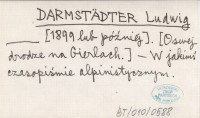 DARMSTÄDTER Ludwig
____ [1899 lub później]. [O swej
drodze na Gierlach.] – W jakimś
czasopiśmie alpinistycznym.
BT/010/0588